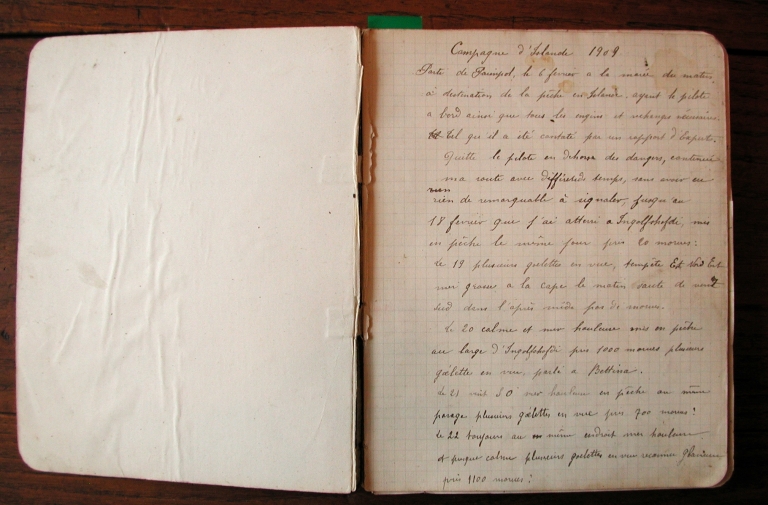 Campagne d'Islande 1909
Partie de Paimpol, le 6 fevrier a la maree du matin
à destination de la pêche en Islande, ayant le pilote
a bord ainsi que tous les engins et rechanges nécessaire
tel qu'il a été constaté par un rapport d'experts.
Quitte le pilote en dehors des dangers, continuer
ma route avec differends temps, sans avoir eu
rien de remarquable à signaler, jusqu'au
18 fevrier que j'ai atterri a Ingolfshofde, mis
en pêche le même jour pris 20 morues:
Le 19 plusieurs goelettes en vue, tempête Est Nord Est
mer grosse a la cape le matin saute de vent
sud dans l'après midi pas de morue.
Le 20 calme et mer houleuse mis en pêche
au large d'Ingolfshofde pris 1000 morues plusieurs
goelette en vue, parlé a Bettina.
Le 21 vent S.O mer houleuse en pêche au même
parage plusieurs goelettes en vue pris 700 morues:
Le 22 toujours au même endroit mer houleuse
et presque calme plusieurs goelettes en vue reconnu
pris 1100 morues: